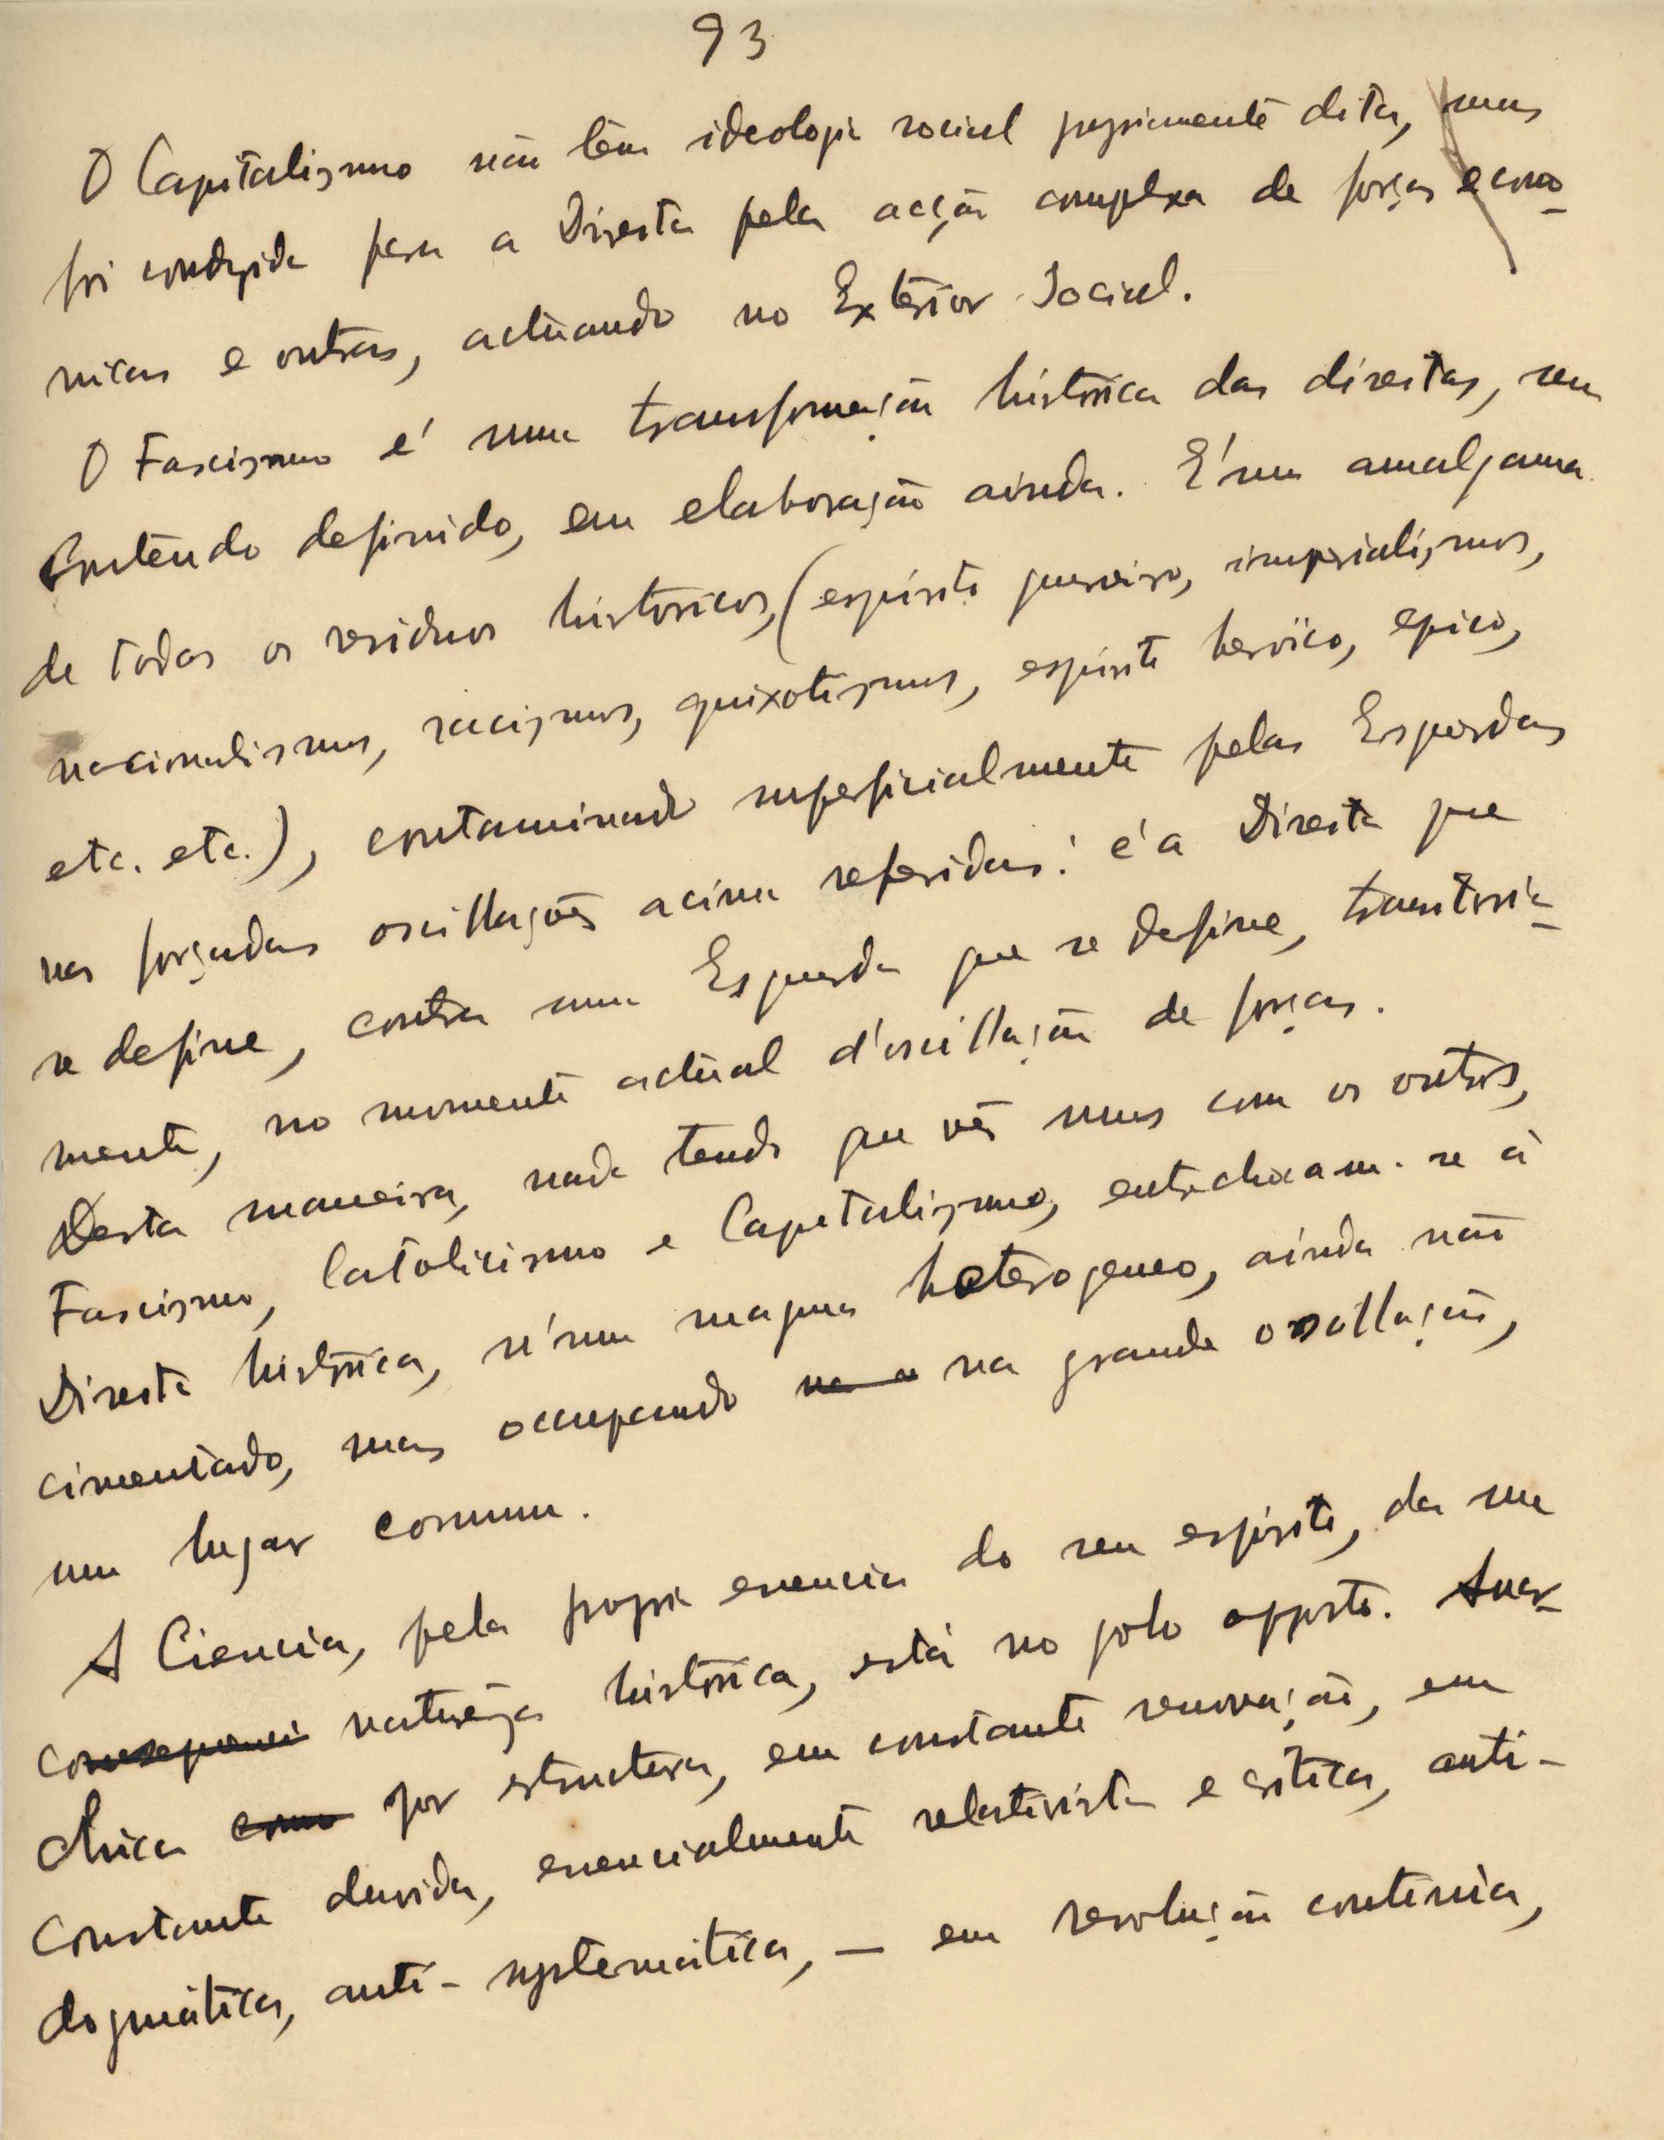 93
O Capitalismo não tem ideologia social propriamente dita, mas
foi conduzido para a Direita pela acção complexa de forças econo-
micas e outras, actuando no Exterior Social.
O Fascismo é uma transformação histórica das direitas, sem
Conteudo definido, em elaboração ainda. É um amalgama
de todos os residuos historicos, (espirito guerreiro, imperialismos,
nacionalismos, racismos, quixotismos, espirito heroico, epico,
etc. etc.), contaminado superficialmente pelas Esquerdas
nas forçadas oscillações acima referidas: é a Direita que
se define, contra uma Esquerda que se define, transitoria-
mente, no momento actual d'oscillação de forças.
Desta maneira, nada tendo que vêr uns com os outros,
Fascismo, Catolicismo e Capitalismo, entrechocam-se à
Direita histórica, n'um magma heterogeneo, ainda não
cimentado, mas occupando na grande oscillação,
um lugar comum.
A Ciencia, pela propria essencia do seu espirito, da sua
natureza histórica, está no polo opposto. Anar-
chica por estructura, em constante renovação, em
Constante duvida, essencialmente relativista e crítica, anti-
dogmática, anti-systemática, — em revolução contínua,